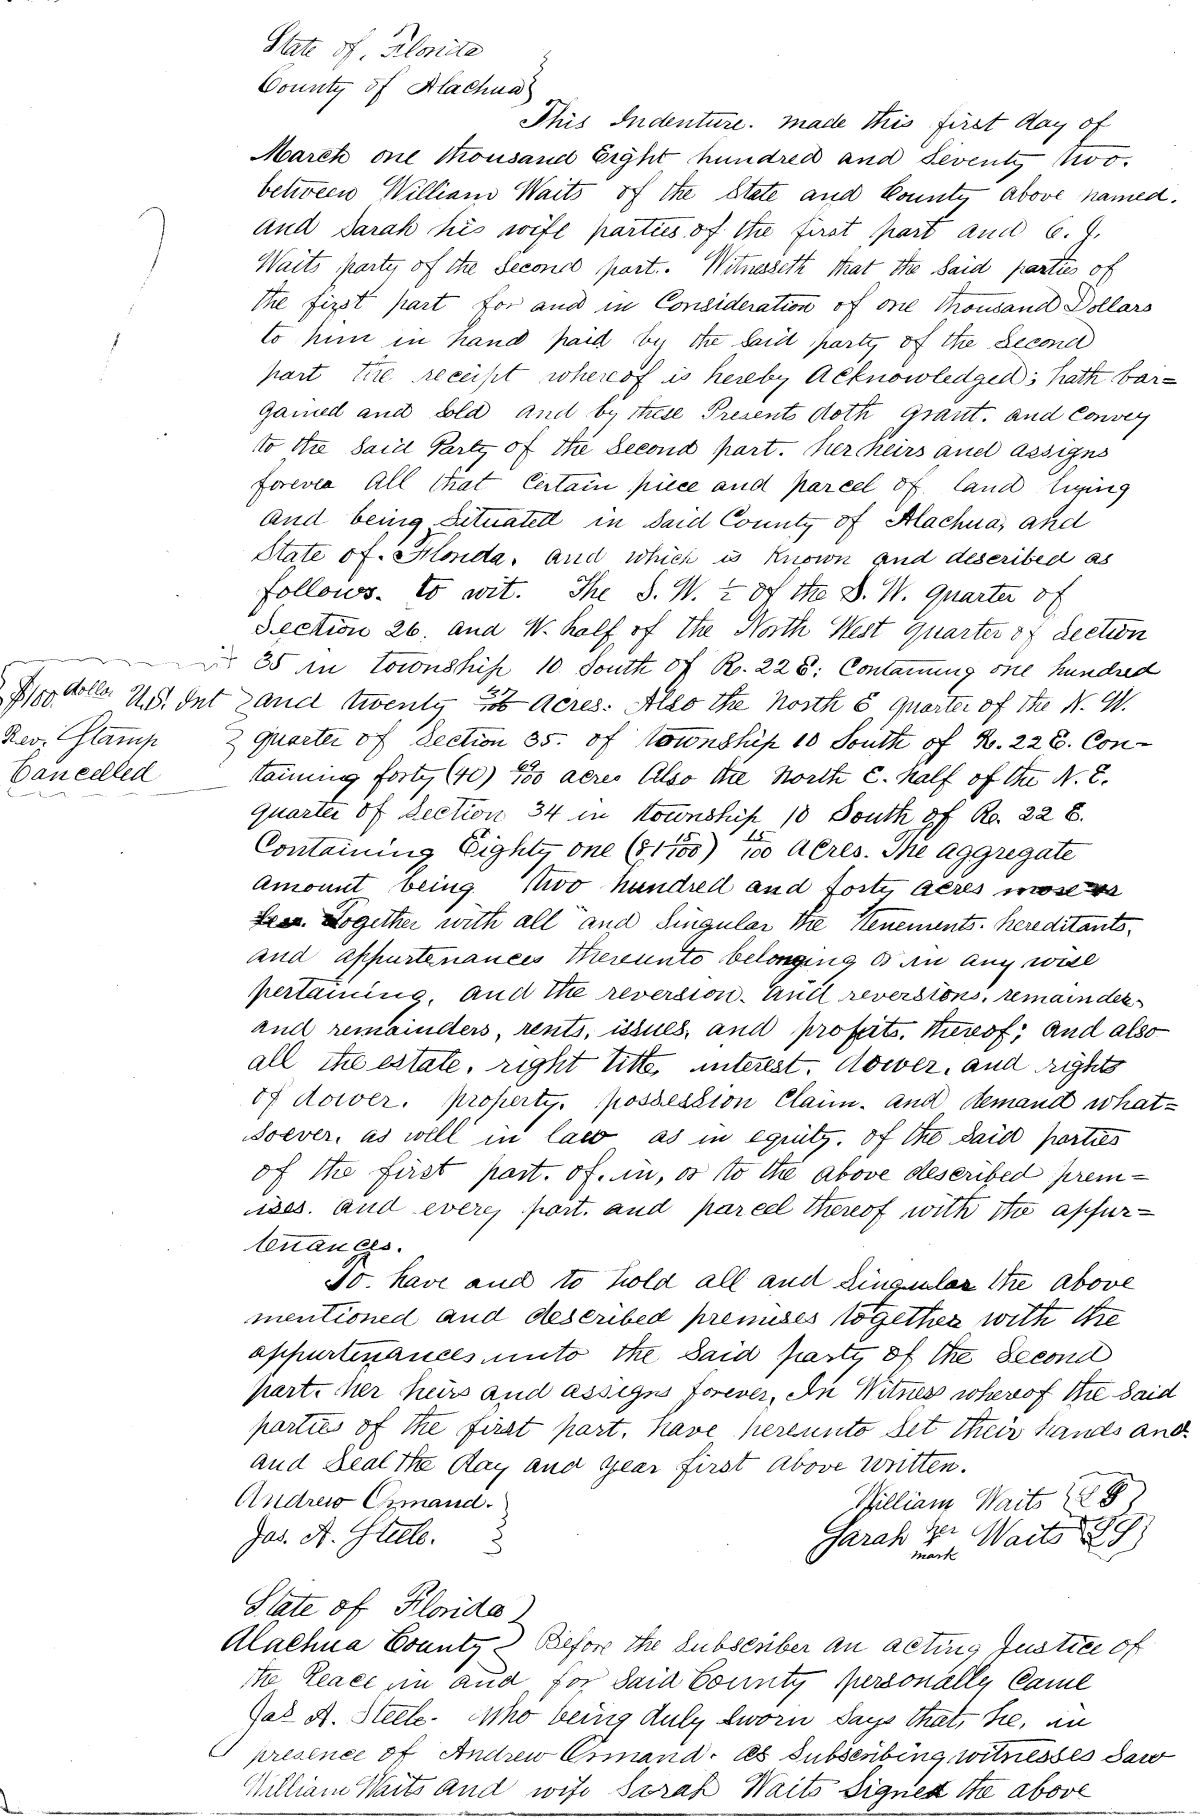 State of, Florida
County of Alachua
This Indenture. made this first day of
March one thousand Eight hundred and Seventy two.
between William Waits of the State and County above named.
and Sarah his wife parties of the first part and C. J.
Waits party of the Second part. Witnesseth that the Said parties of
the first part for and in Consideration of one thousand Dollars
to him in hand paid by the Said party of the Second
part the receipt whereof is hereby Acknowledged; hath bar=
gained and Sold and by these Presents doth grant. and Convey
to the Said Party of the Second part. her heirs and assigns
forever All that Certain piece and parcel of land lying
and being Situated in Said County of Alachua, and
State of. Florida. and which is Known and described as
follows. to wit. The S. W. ½ of the S. W. quarter of
Section 26. and W. half of the North West quarter of Section
35 in township 10 South of R. 22 E; Containing one hundred
$1.00 dollar U.S. Int
and twenty 37/100 Acres. Also the North E quarter of the N. W.
Rev. Stamp
quarter of Section 35. of township 10 South of R. 22 E. Con-
Cancelled
taining forty (40) /100 acres Also the North E. half of the N. E.
quarter of Section 34 in township 10 South of R. 22 E.
Containing Eighty one (81 15/100) 15/100 Acres. The aggregate
amount being two hundred and forty acres more or
less. Together with all and Singular the tenements. hereditants,
and appurtenances thereunto belonging or in any wise
pertaining, and the reversion. and reversions, remainder
and remainders, rents, issues, and profits, thereof; and also
all the estate, right title, interest, dower, and rights
of dower. property, possession Claim. and demand what=
soever, as well in law as in equity. of the Said parties
of the first part. of, in, or to the above described prem=
ises. and every part. and parcel thereof with the appur=
tenances.
To have and to hold all and Singular the above
mentioned and described premises together with the
appurtenances unto the Said party of the Second
part. her heirs and assigns forever, In Witness whereof the Said
parties of the first part. have hereunto Set their hands and
and Seal the day and year first above written.
Andrew Ormand. William Waits LS
Jas. A. Steele. Sarah her mark Waits LS
State of Florida
Alachua County Before the Subscriber an acting Justice of
the Peace in and for Said County personally Came
Jas A. Steele. Who being duly Sworn Says that, he, in
presence of Andrew Ormand. as Subscribing witnesses Saw
William Waits and wife Sarah Waits Signed the above